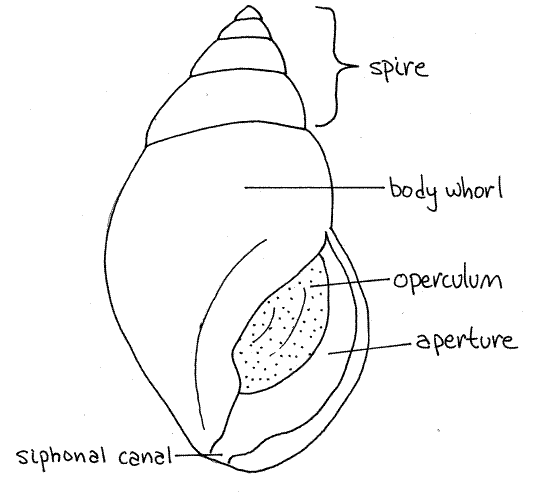 spire
body whorl
operculum
aperture
siphonal canal